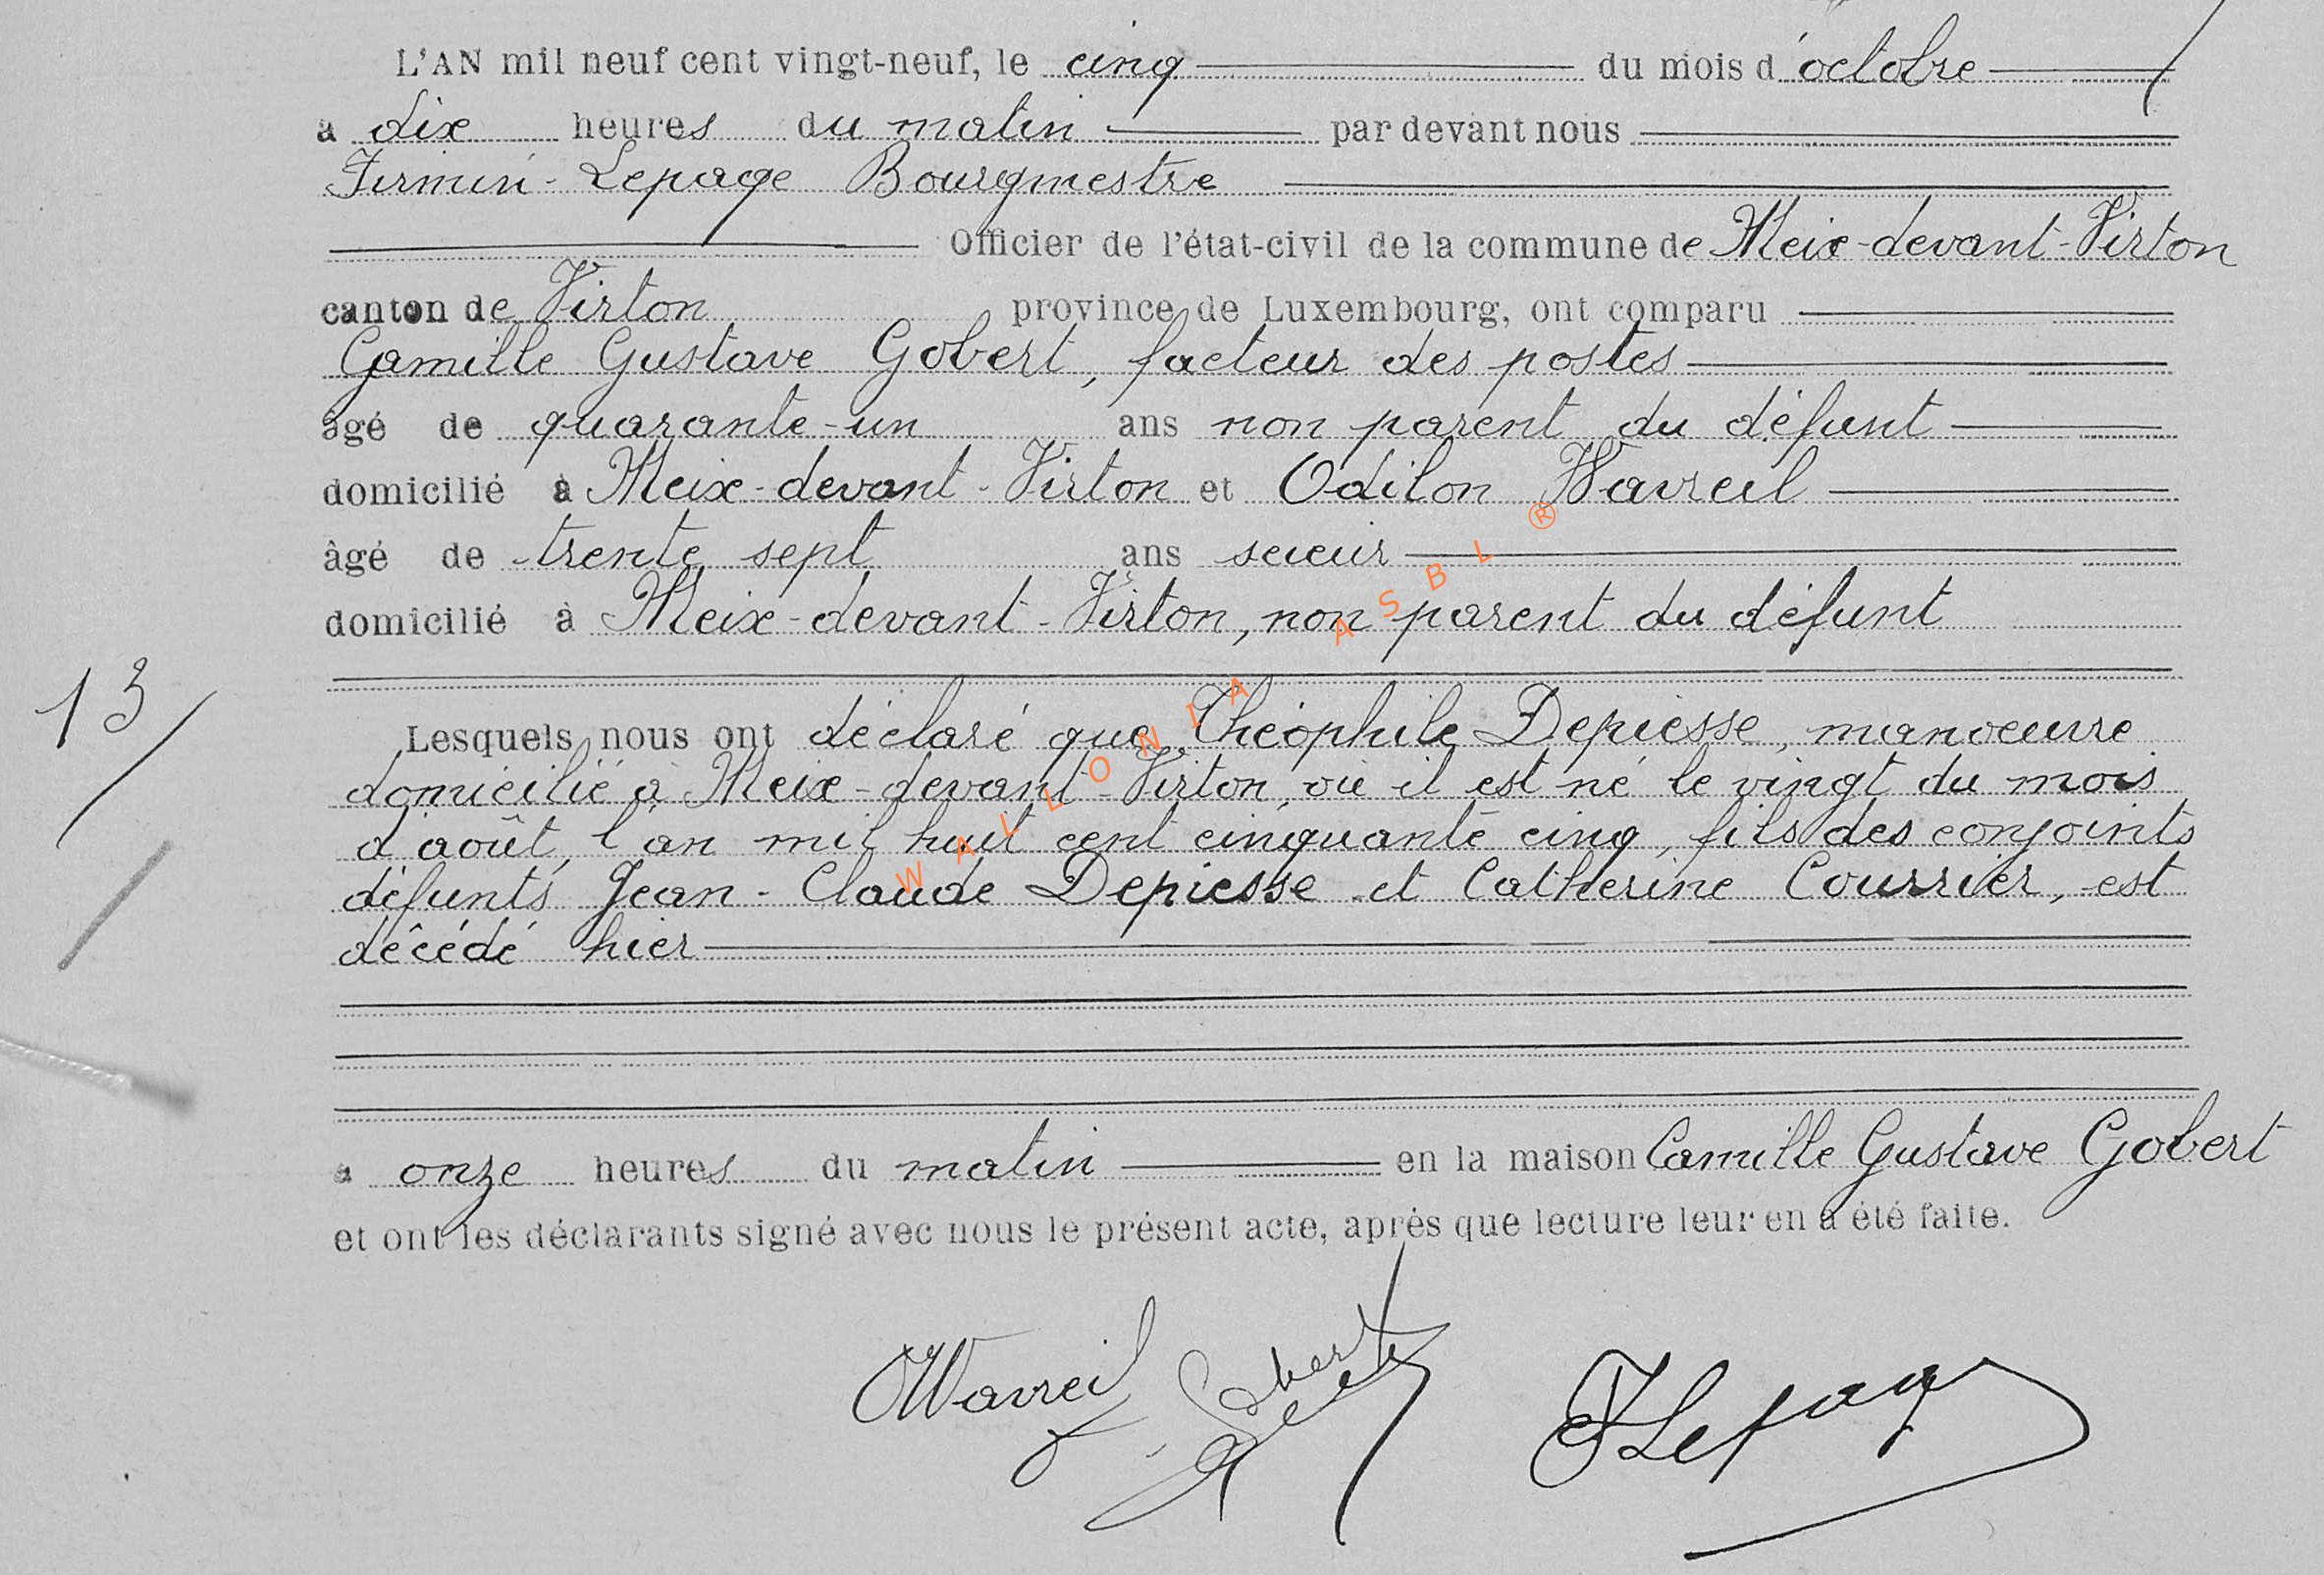 L'AN mil neuf cent vingt-neuf, le cinq du mois d'octobre
a dix heures du matin par devant nous
Firmin Lepage Bourgmestre
Officier de l'état-civil de la commune de Meix-devant-Virton
canton de Virton province de Luxembourg, ont comparu
Camille Gustave Gobert, facteur des postes
âgé de quarante-un ans non parent du défunt
domicilié à Meix-devant-Virton et Odilon Wavreil
âgé de trente sept ans scieur
domicilié à Meix-devant-Virton, non parent du défunt
13
Lesquels nous ont déclaré que Théophile Depiesse, manoeuvre
domicilié à Meix-devant-Virton, où il est né le vingt du mois
d'août, l'an mil huit cent cinquante cinq, fils des conjoints
défunts Jean-Claude Depiesse et Catherine Courrier, est
décédé hier
a onze heures du matin en la maison Camille Gustave Gobert
et ont les déclarants signé avec nous le présent acte, après que lecture leur en a été faite.
OWavreil Gobert FLepage
WALLONIA ASBL ®